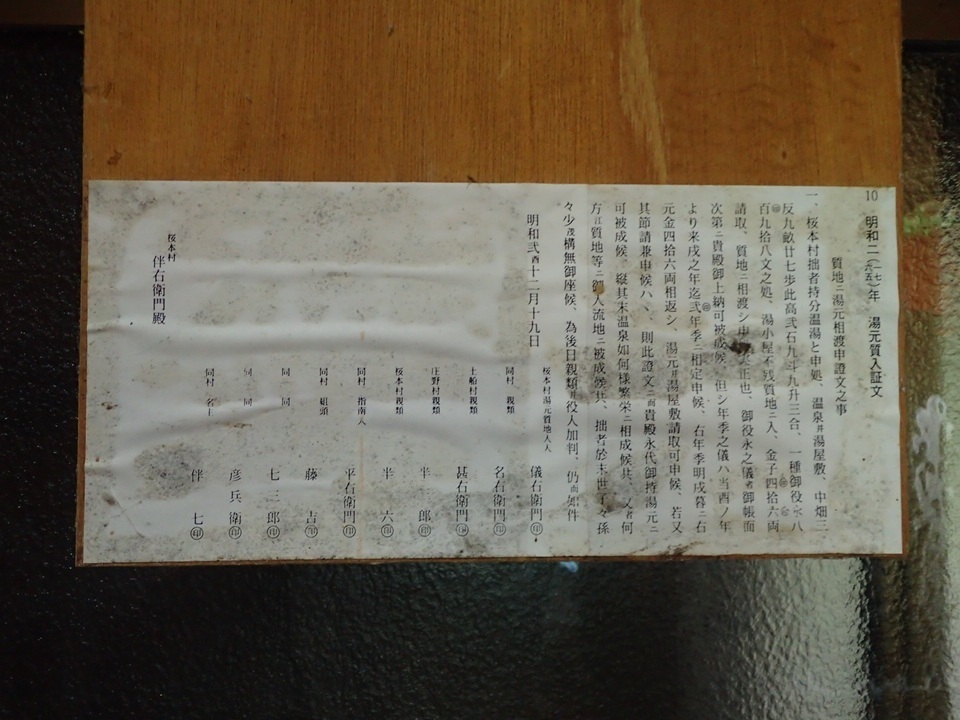 10 明和二(一七六五)年 湯元質入証文
質地ニ湯元相渡申證文之事
一、桜本村拙者持分温湯と申処、温泉并湯屋敷、中畑三
反九畝廿七歩此高弐石九斗九升三合、一種御役永八
百九拾八文之処、湯小屋不残質地ニ入、金子四拾六両
請取、質地ニ相渡シ申 実正也、御役永之儀者御帳面
次第ニ貴殿御上納可被成候、但シ年季之儀ハ当酉ノ年
より来戌之年迄弐年季ニ相定申候、右年季明戌暮ニ右
元金四拾六両相返シ、湯元并湯屋敷請取可申候、若又
其節請兼申候ハヽ、則此證文ニ而貴殿永代御持湯元ニ
可被成候、縦其末温泉如何様繁栄ニ相成候共、又者何
方江質地等ニ御入流地ニ被成候共、拙者於末世ニ々孫
々少茂構無御座候、為後日親類并役人加判、仍而如件
明和弐酉十二月十九日
桜本村湯元質地人 儀右衛門㊞
同村 親類 名右衛門㊞
土船村親類 甚右衛門㊞
庄野村親類 半 郎㊞
桜本村親類 半 六㊞
同村 指南人 平右衛門㊞
同村 組頭 藤 吉㊞
同 同 七三郎㊞
同 同 彦兵衛㊞
同村 名主 伴 七㊞
桜本村
伴右衛門殿